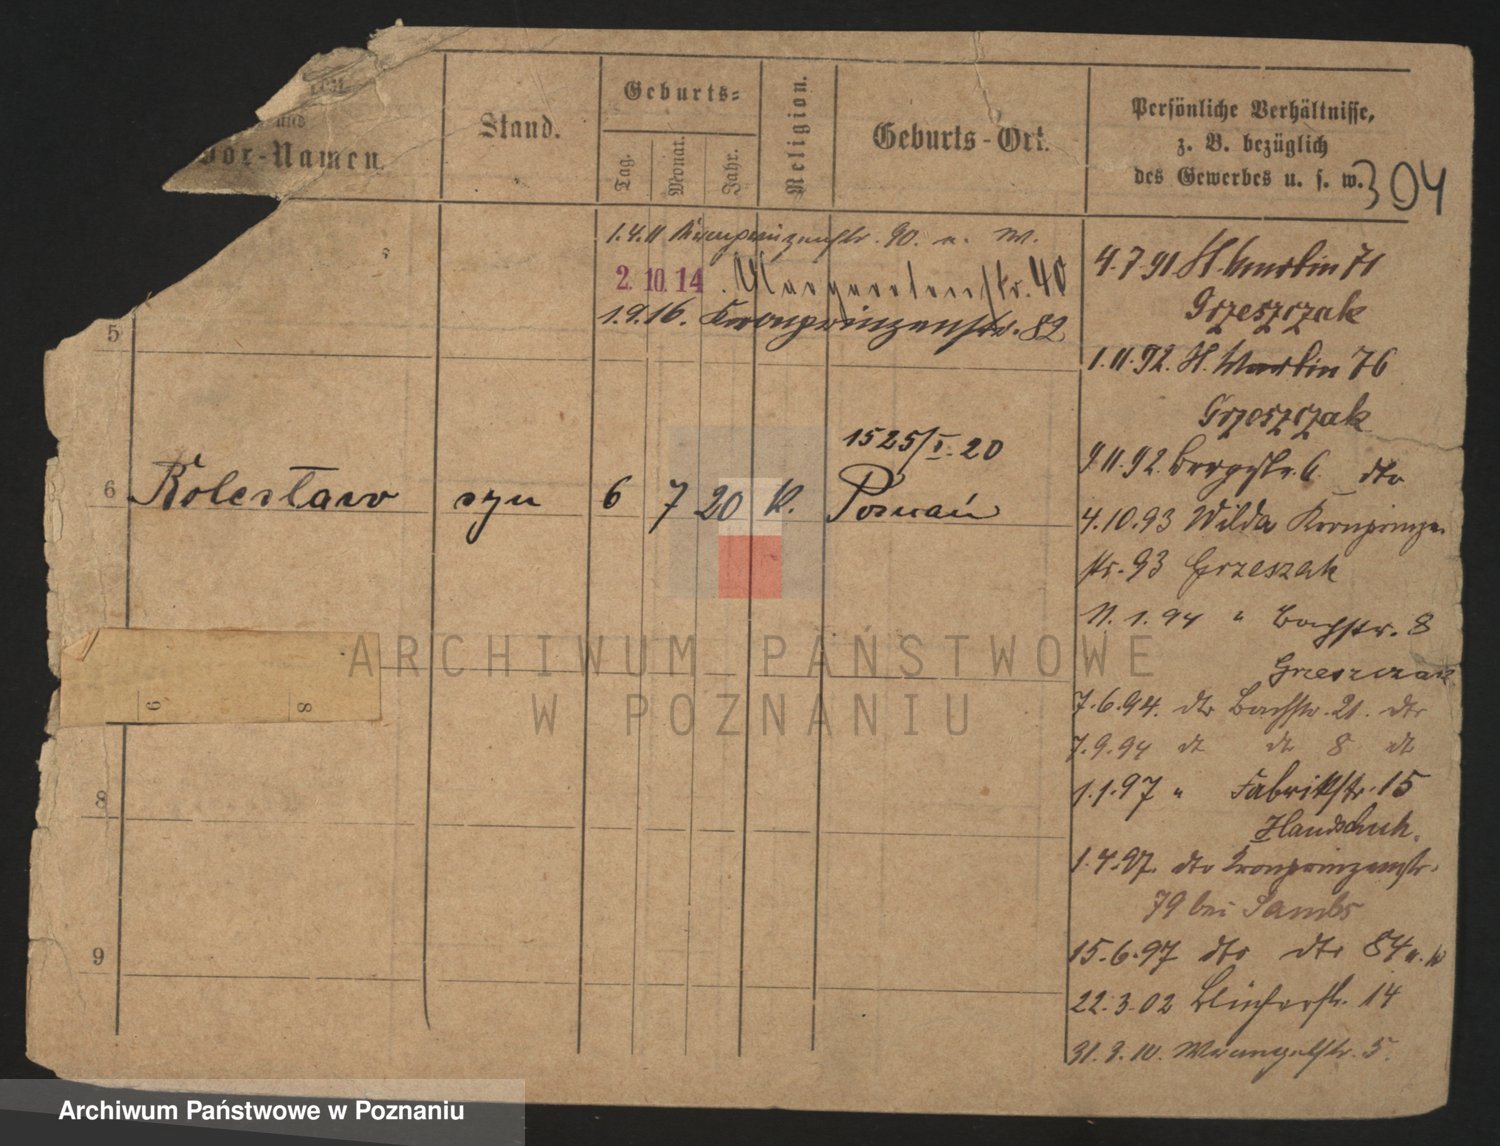 und
Vor-Namen.
Stand.
Geburts-
Tag.
Monat.
Jahr.
Religion.
Geburts-Ort.
Persönliche Verhältnisse,
z. B. bezüglich
des Gewerbes u. s. w.
304
1.4.11 Kronprinzenstr. 90. u. W.
2. 10. 14. Margaretenstr. 40
1.9.16. Kronprinzenstr. 82
5
6 Bolesław syn 6 7 20 K. Poznań
1525/I. 20
9
8
8
9
4.7.91 St. Martin 71
Grzeszczak
1.11.92. St. Martin 76
Grzeszczak
9.11.92. Bergstr. 6 dto
4.10.93 Wilda Kronprinzen
str. 93 Grzeszak
11.1.94 " Bachstr. 8
Grzeszczak
7.6.94. dto Bachstr. 21. dto
7.9.94 dt dt 8 dt
1.1.97 " Fabrikstr. 15
Handschuh.
1.4.97. dto Kronprinzenstr.
79 bei Sambs
15.6.97 dto dto 84 u. W
22.3.02 Blücherstr. 14
31.3.10. Wrangelstr. 5.
ARCHIWUM PAŃSTWOWE
W POZNANIU
Archiwum Państwowe w Poznaniu